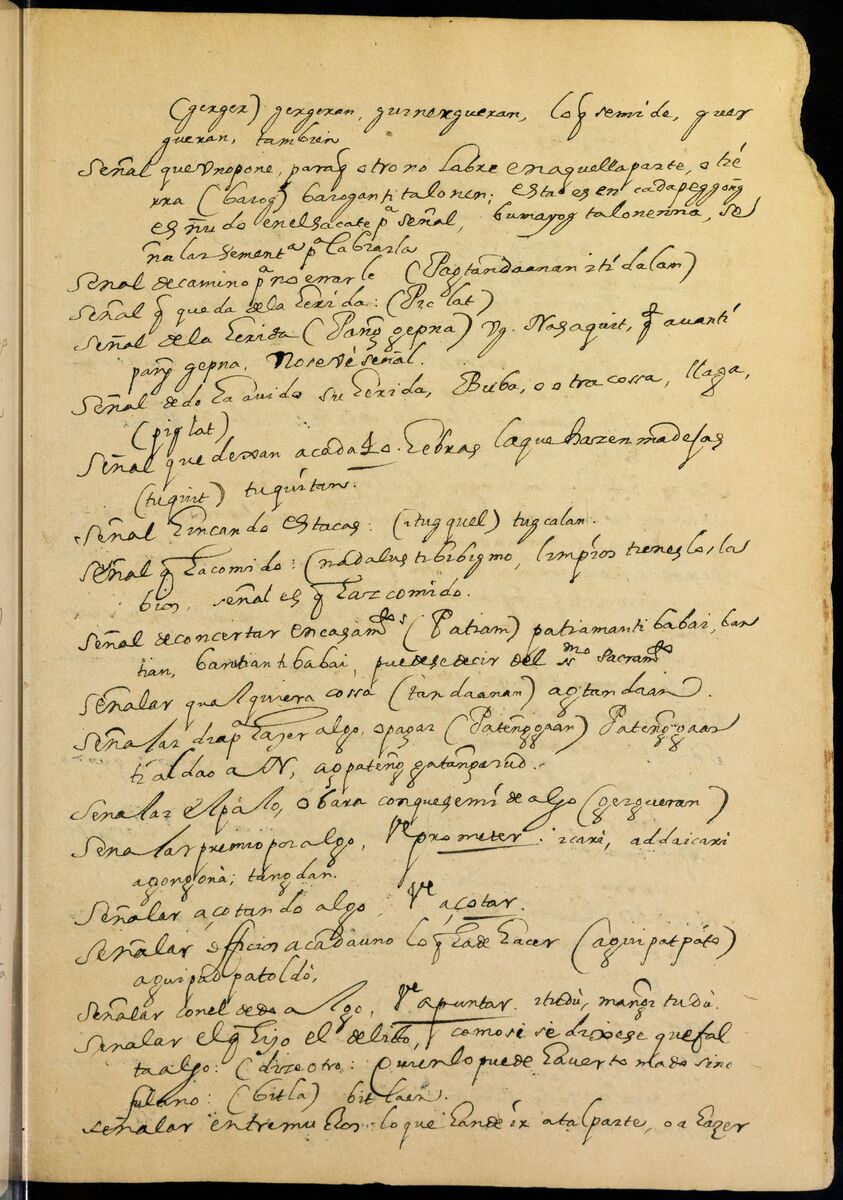 (gerger) gergeran, guinergueran, lo q̃ se mide, guer
gueran, tambien
Señal que Vno pone, paraq̃ otro no labre en aquella parte, o tiê
rra (barog) barogan ti talonen; esta es en cada peggong̃
es ñudo en el sacate pª señal, bumarog talonenna, se
ñalar sementª pª labrarla
Señal de camino pª no errarle (Pagtandaanan iti dalan)
Señal q̃ queda de la herida: (Piclat)
Señal de la herida (Pang̃gepna) Vg. Nasaquit, q̃ auan ti
pang̃gepna, No se vè señal.
Señal de do ha auido su herida, Buba, o otra cossa, llaga,
(piglat)
Señal que dexan a cada 40. hebras las que hazen madejas
(tuquit) tuquitan.
Señal hincando estacas: (itugquel) tugcalan.
Señal q̃ ha comido: (nadalus ti bibigmo, limpios tienes los la
bios, señal es q̃ has comido.
Señal de concertar en casamᵗᵒˢ (Patiam) patiaman ti babai, ban
tian, bantian ti babai, puede se decir del ssᵐᵒ sacramᵗᵒ
Señalar qualquiera cossa (tandaanan) agtandaan.
Señalar dia pª hazer algo, o pagar (Pateng̃gaan) Pateng̃gaan
ti aldao a N, agpateng̃gatang̃arud.
Señalar el palo, o bara con que se mide algo (gergueran)
Señalar premio por algo, Vᵉ prometer: icari, addaicari
agong̃ona; tang̃dan.
Señalar açotando algo, Vᵉ açotar.
Señalar officios a cada uno lo q̃ ha de hacer (aguipatpato)
aguipão patoldò,
Señalar con el dedo algo, Vᵉ apuntar. itudu, mang̃itudù.
Señalar el q̃ hijo el delito, como si se dixese que fal
ta algo: (dize otro: Quien lo puede hauer tomado sino
fulano: (bitla) bitlaen.
Señalar entre muchos lo que han de ir a tal parte, o a hazer